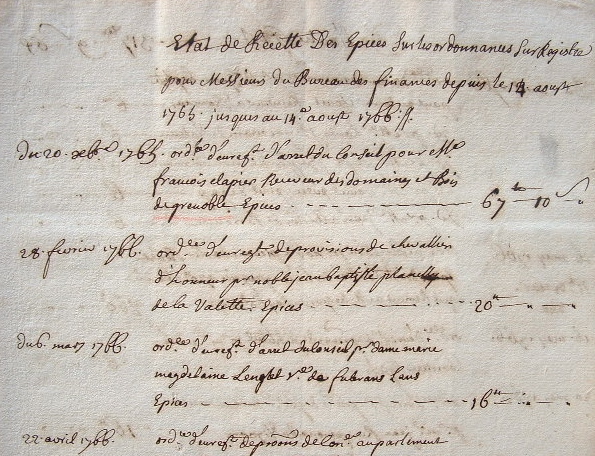 Etat de Recette Des Epices Sur les ordonnances Sur Registre
pour Messieurs du Bureau des finances depuis le 14 aoust
1765. jusques au 14e aoust 1766 ./.
du 20. xbre 1765. ordce d'enregt d'arret du Conseil pour Me
francois clapier Receveur des domaines et Bois
de grenoble Epices 67 tt 10 s
28. fevrier 1766. ordce d'enregt de provisions de chevallier
d'honneur pr noble jean baptiste planelly
de la Valette. Epices 20 tt
du 6. mars 1766. ordce d'enregt d'arret du Conseil pr dame marie
magdelaine Lenglet Ve de Sans
Epices 16 tt
22. avril 1766. ordce d'enregt de provons de Coner au parlement